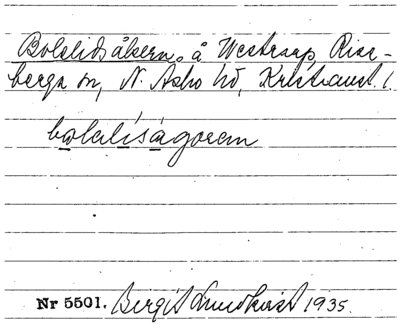 Bolslidsåkern, å Westraap, Rise-
berga sn, N. Åsbo hd, Kristianst. l.
bolslisågoren
Nr 5501. Birgit Lundkvist 1935.